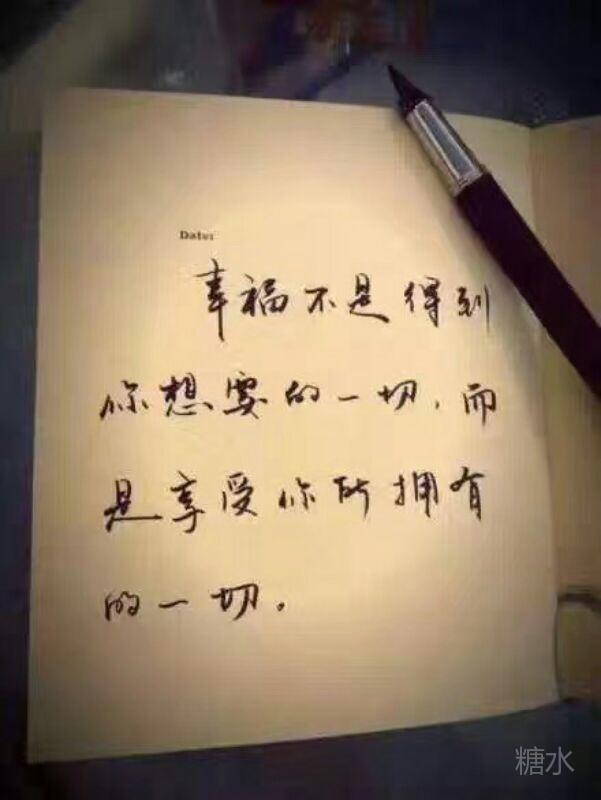 Date:
幸福不是得到
你想要的一切,而
是享受你所拥有
的一切。
糖水